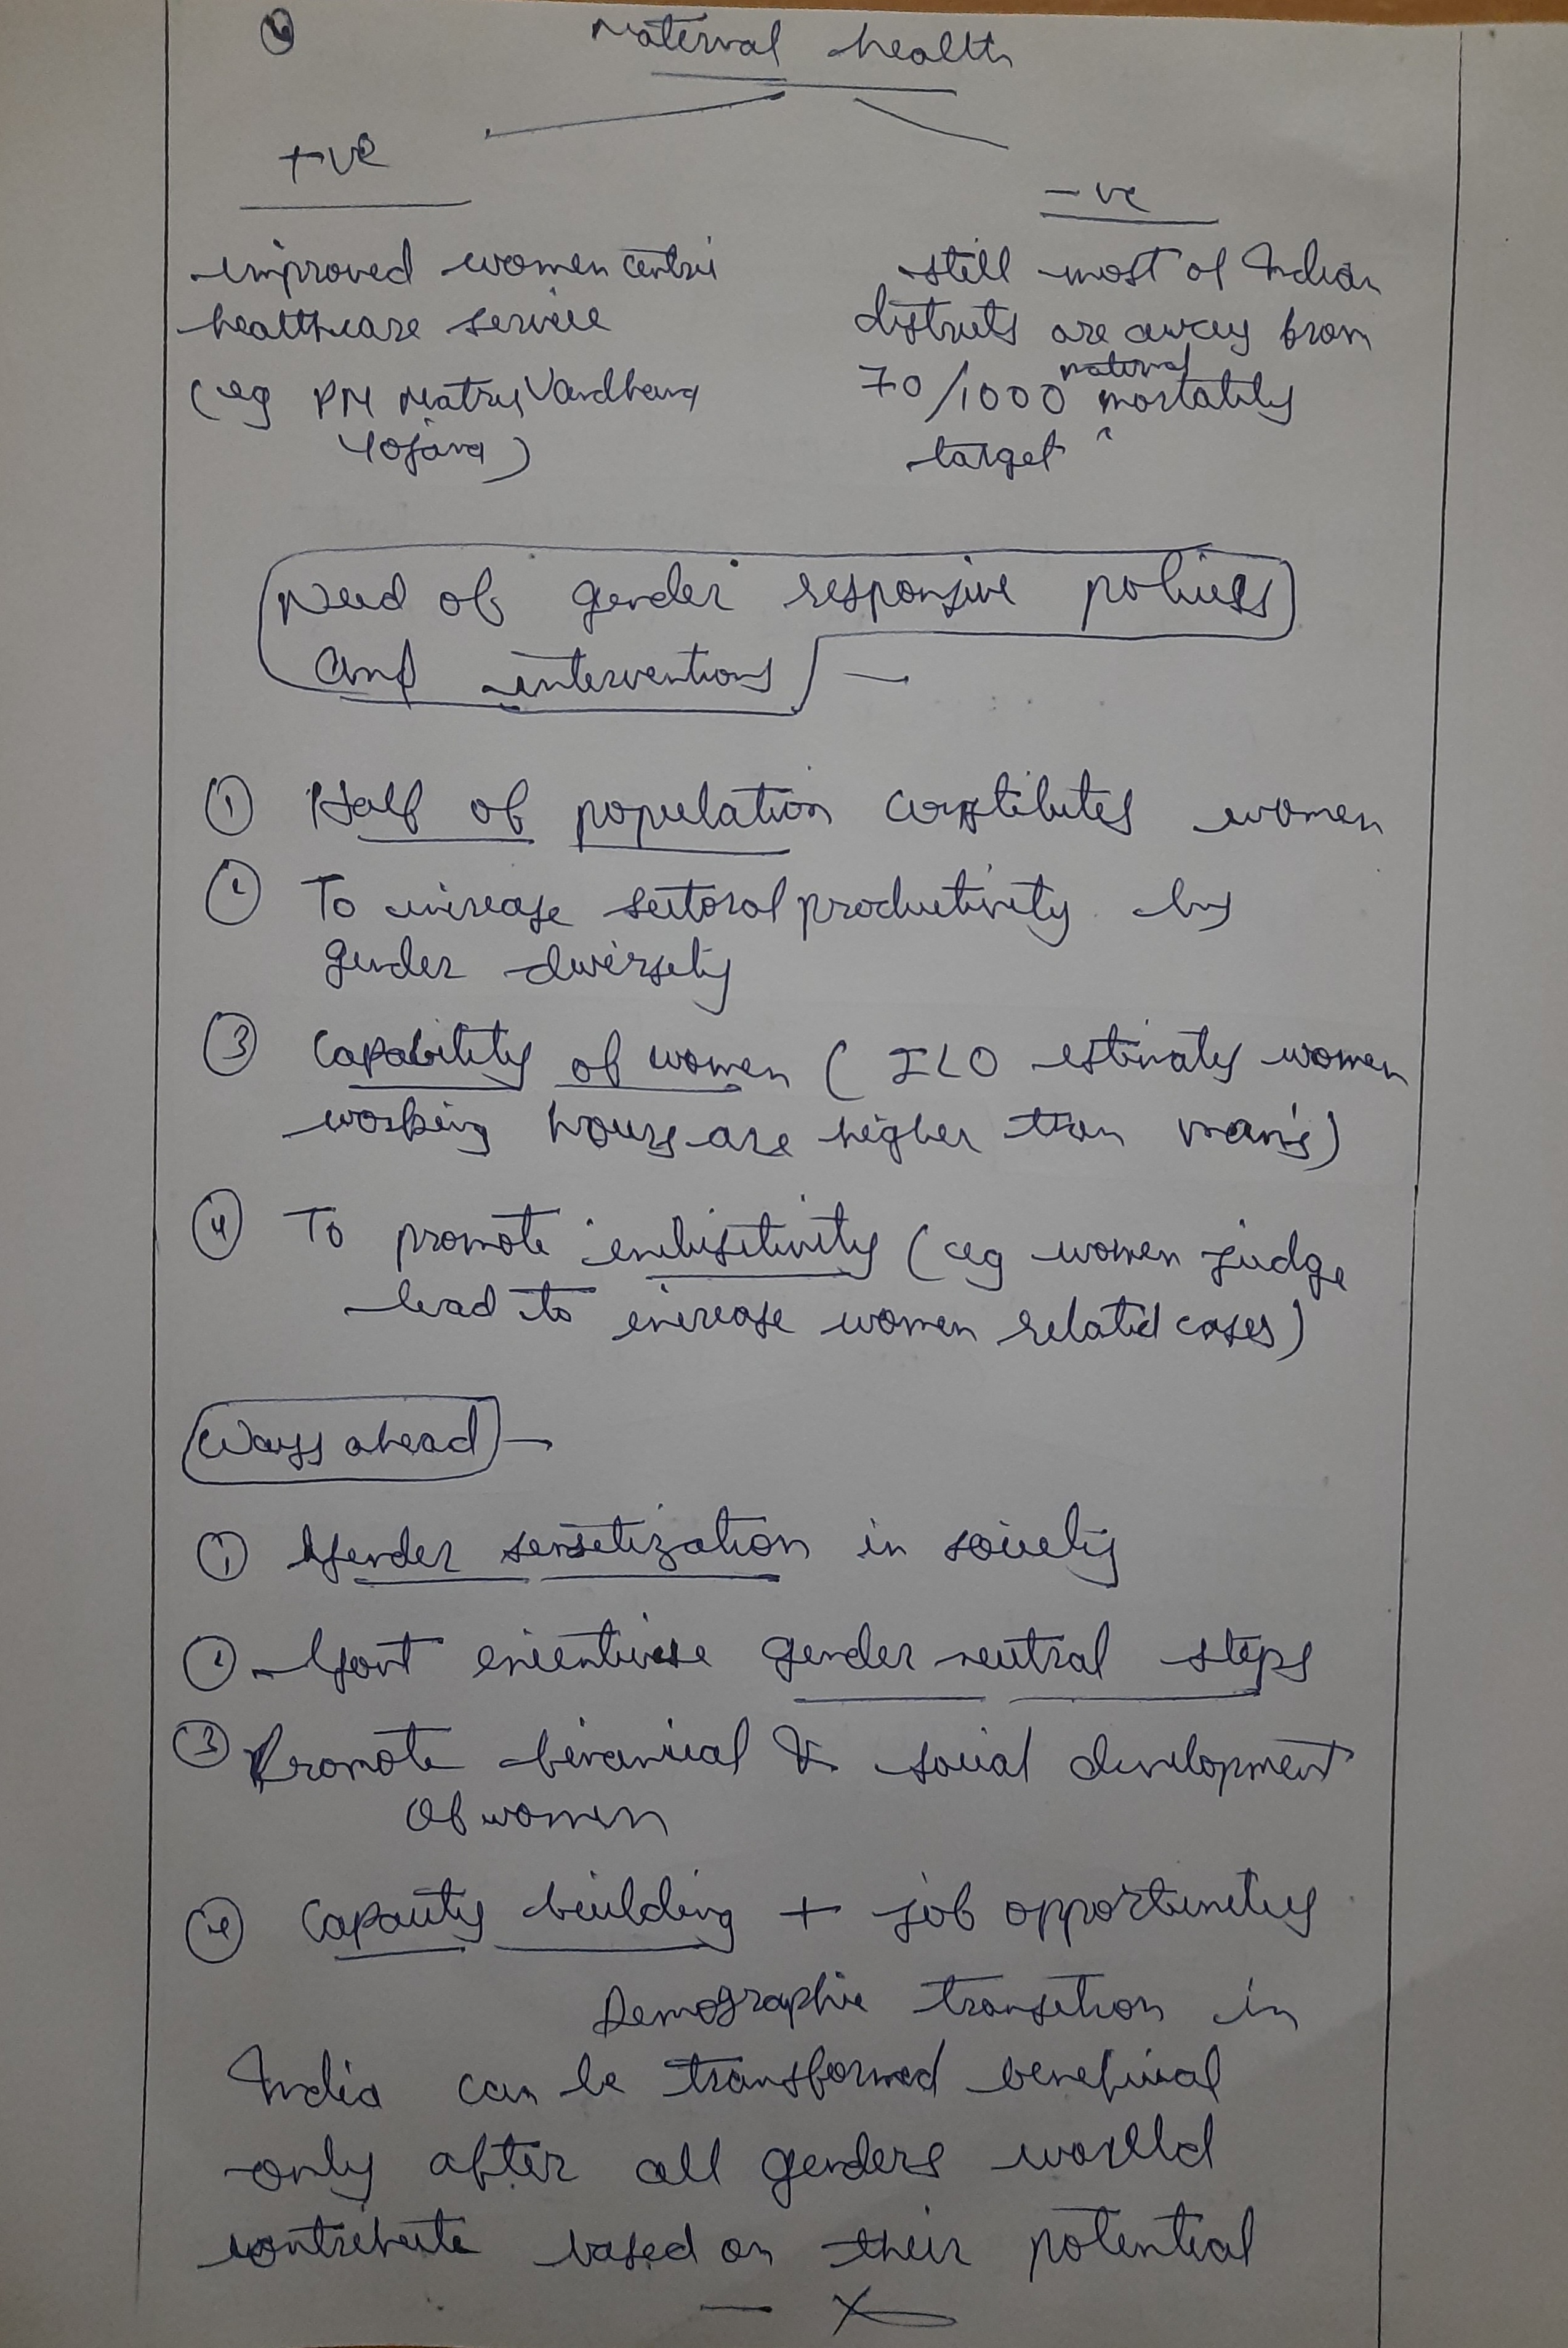 Maternal health
+ve
-ve
improved women centric
healthcare service
(eg PM Matru Vandhana
Yojana)
still most of Indian
districts are away from
70/1000 maternal mortality
target
Need of gender responsive policies
and interventions →
① Half of population constitutes women
② To increase sectoral productivity by
gender diversity
③ Capability of women (ILO estimates women
working hours are higher than man's)
④ To promote inclusitivity (eg women judge
lead to increase women related cases)
Ways ahead →
① Gender sensetization in society
② Govt incentivise gender neutral steps
③ Promote financial & social development
of women
④ Capacity building + job opportunities
Demographic transition in
India can be transformed beneficial
only after all genders would
contribute based on their potential